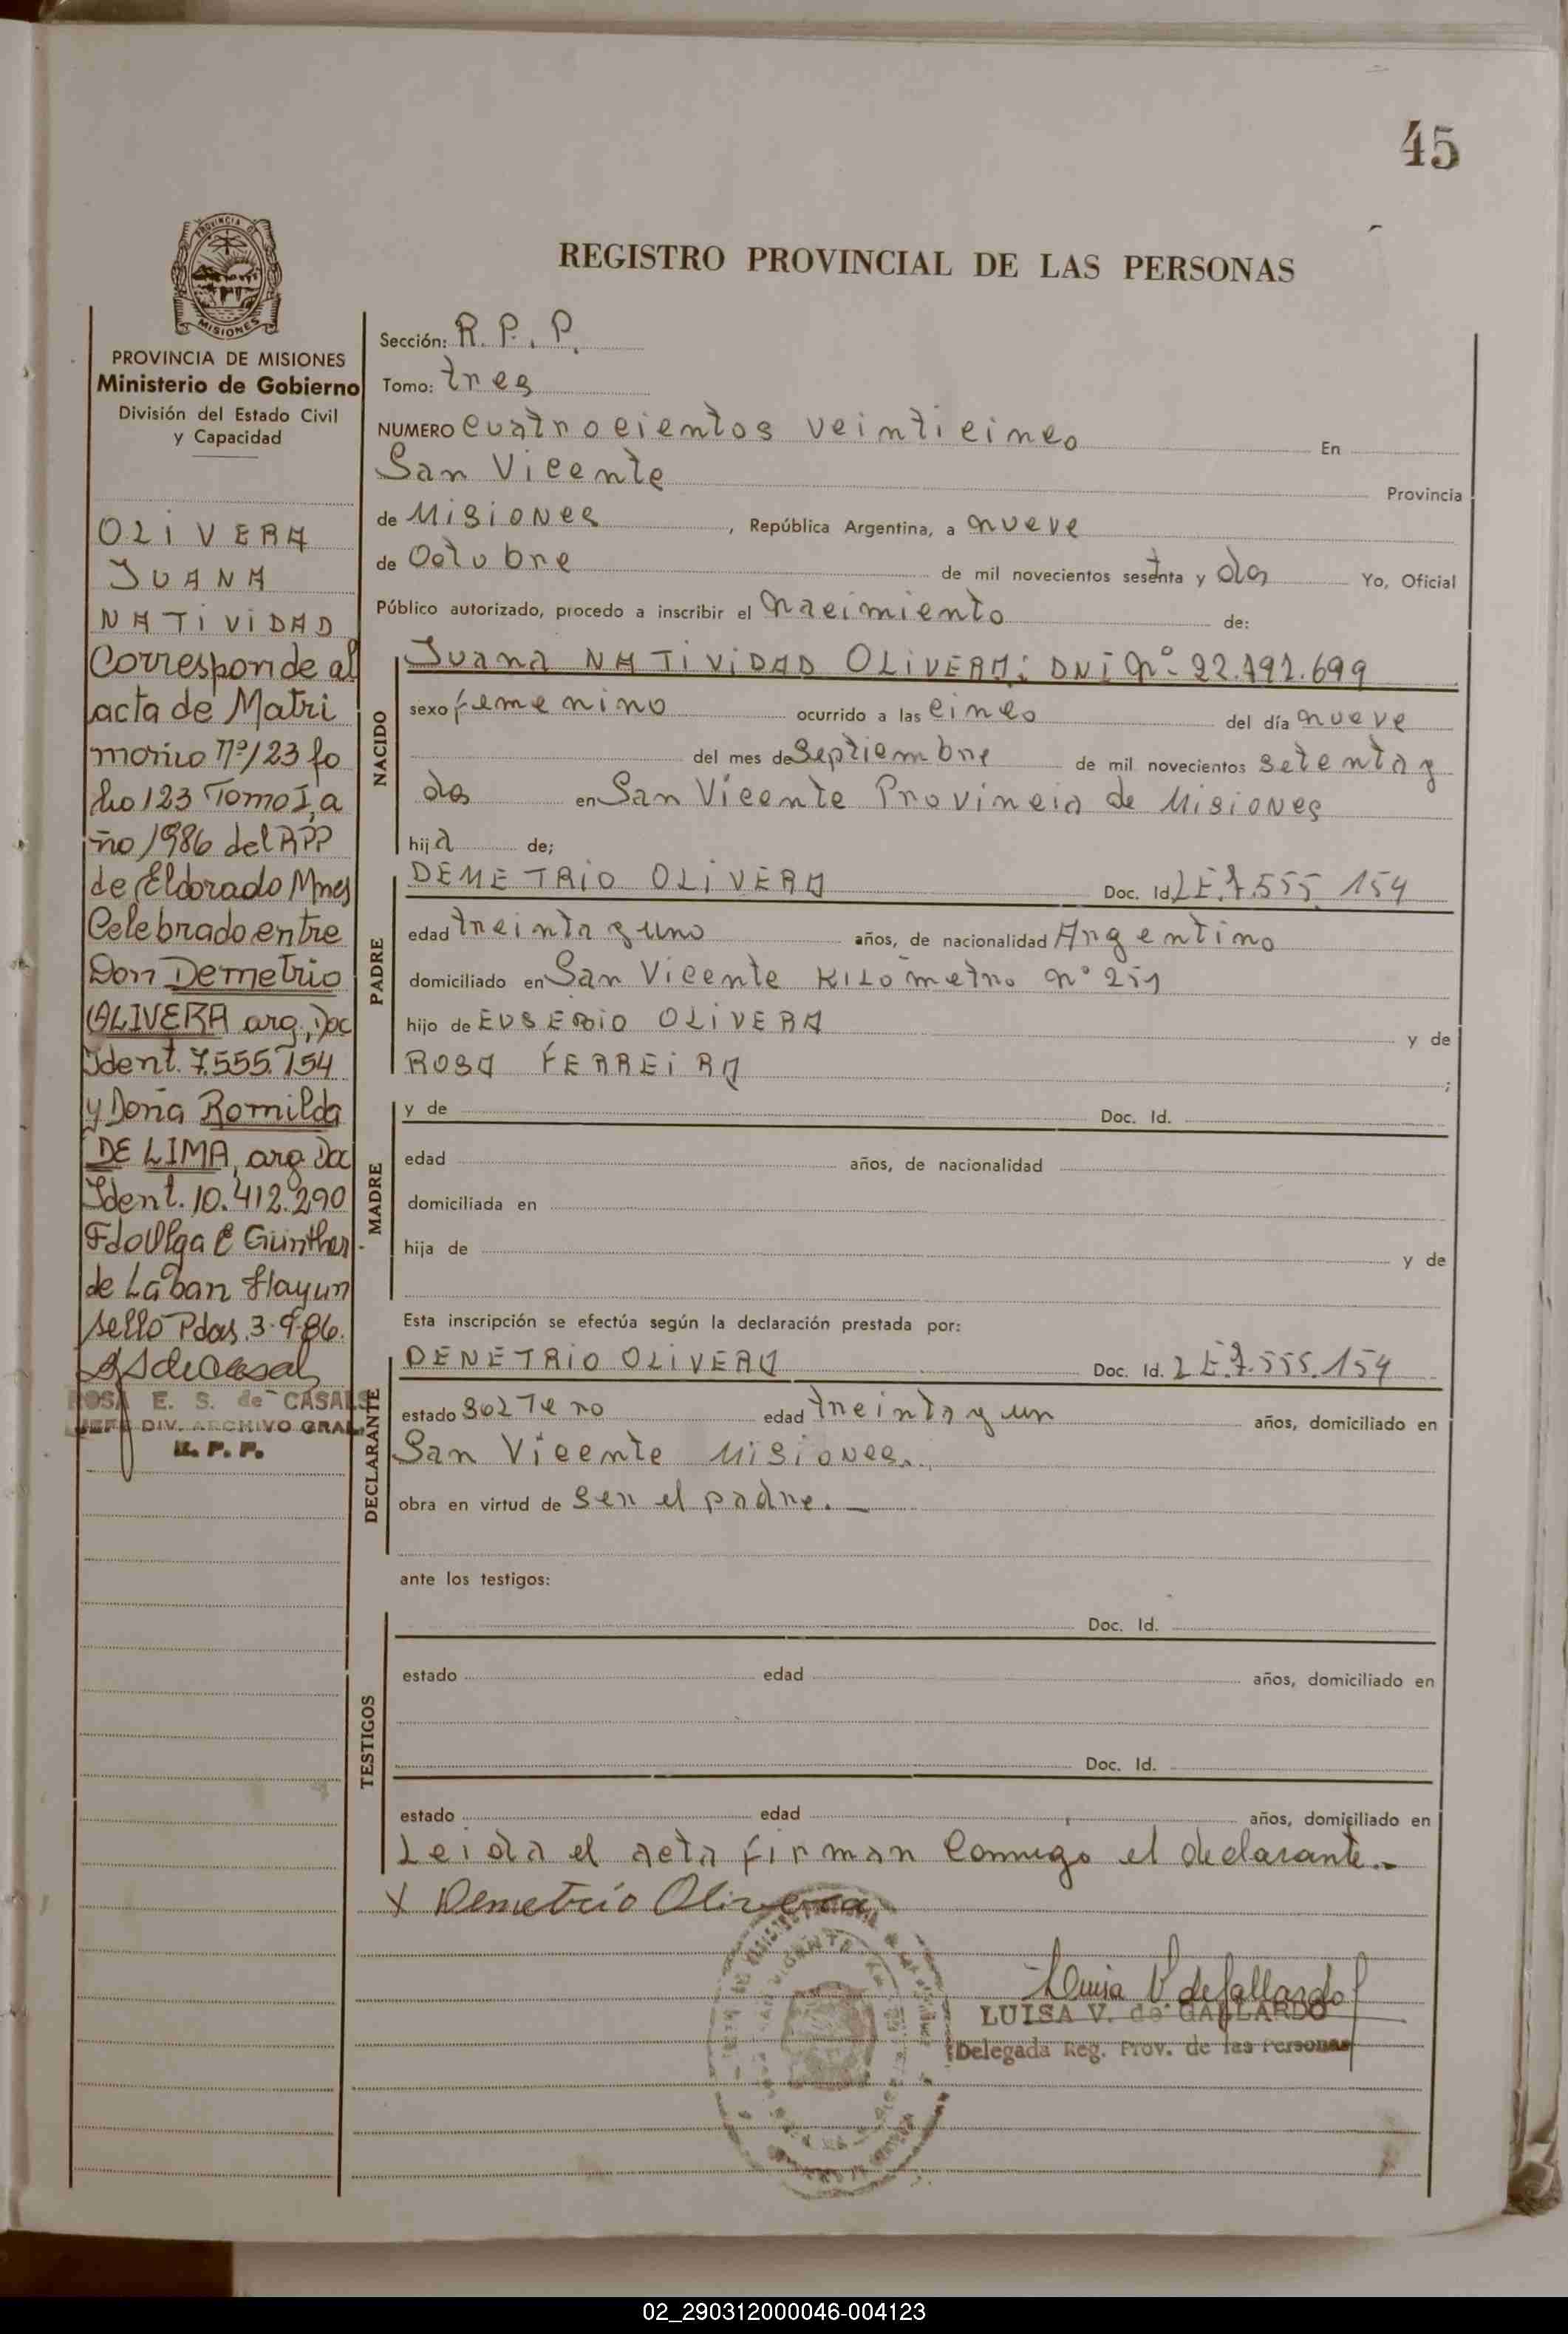 45
REGISTRO PROVINCIAL DE LAS PERSONAS
PROVINCIA DE MISIONES
Ministerio de Gobierno
División del Estado Civil
y Capacidad
OLIVERA
JUANA
NATIVIDAD
Corresponde al
acta de Matri
monio nº 123 fo
lio 123 Tomo I, a
ño 1986 del RPP
de Eldorado Mnes
Celebrado entre
Don Demetrio
OLIVERA arg. Doc
Ident. 7.555.154
y Doña Romilda
DE LIMA, arg. Doc
Ident. 10.412.290
Fdo Olga E Günther
de Laban Hay un
sello Pdas. 3-9-86.
ROSA E. S. de CASALS
JEFE DIV. ARCHIVO GRAL.
R. P. P.
Sección: R. P. P.
Tomo: tres
NUMERO cuatrocientos veinticinco En
San Vicente Provincia
de Misiones, República Argentina, a nueve
de Octubre de mil novecientos sesenta y dos Yo, Oficial
Público autorizado, procedo a inscribir el nacimiento de:
NACIDO
Juana NATIVIDAD OLIVERA: DNI Nº- 22.792.699
sexo femenino ocurrido a las cinco del día nueve
del mes de Septiembre de mil novecientos setenta y
dos en San Vicente Provincia de Misiones
hija de;
PADRE
DEMETRIO OLIVERA Doc. Id. LE.7.555.154
edad treinta y uno años, de nacionalidad Argentino
domiciliado en San Vicente KILómetro nº 251
hijo de EUSEBIO OLIVERA y de
ROSA FERREIRA;
MADRE
y de Doc. Id.
edad años, de nacionalidad
domiciliada en
hija de y de
Esta inscripción se efectúa según la declaración prestada por:
DECLARANTE
DEMETRIO OLIVERA Doc. Id. LE.7.555.154
estado SOLTero edad treinta y un años, domiciliado en
San Vicente Misiones.
obra en virtud de ser el padre.—
ante los testigos:
TESTIGOS
Doc. Id.
estado edad años, domiciliado en
Doc. Id.
estado edad años, domiciliado en
Leida el acta firman conmigo el declarante.-
X Demetrio Olivera
Luisa V de Gallardo
LUISA V. de GALLARDO
Delegada Reg. Prov. de las Personas
02_290312000046-004123